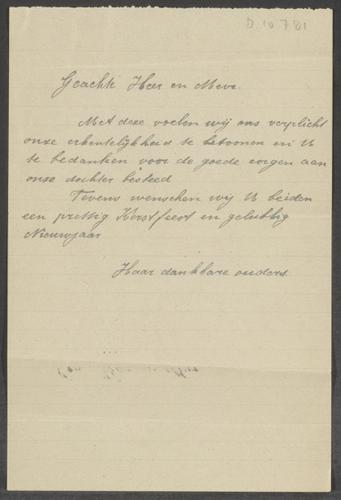 D 10781
Geachte Heer en Mevr.
Met deze voelen wij ons verplicht
onze erkentelijkheid te betoonen en U
te bedanken voor de goede zorgen aan
onze dochter besteed
Tevens wenschen wij U beiden
een prettig Kerstfeest en gelukkig
Nieuwjaar
Haar dankbare ouders.